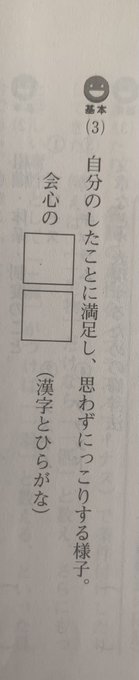 基本
(3) 自分のしたことに満足し、思わずにっこりする様子。
会心の□□(漢字とひらがな)